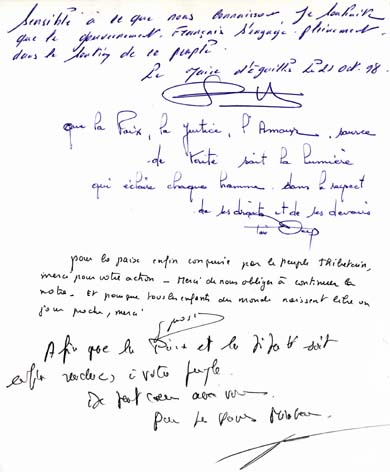 Sensible à ce que nous connaissons, Je souhaite
que le gouvernement Français s'engage pleinement
dans le soutien de ce peuple.
Le Maire d'Eguilles le 21 oct. 98
que la Paix, la Justice, l'Amour, source
de toute soit la lumière
qui éclaire chaque homme dans le respect
de ses droits et de ses devoirs
pour la paix enfin conquise par le peuple Thibetain,
merci pour votre action - Merci de nous obliger à continuer la
notre - Et pour que tous les enfants du monde naissent libre un
jour proche, merci
Afin que la Paix et la soit
enfin à votre peuple.
De tout cœur avec vous